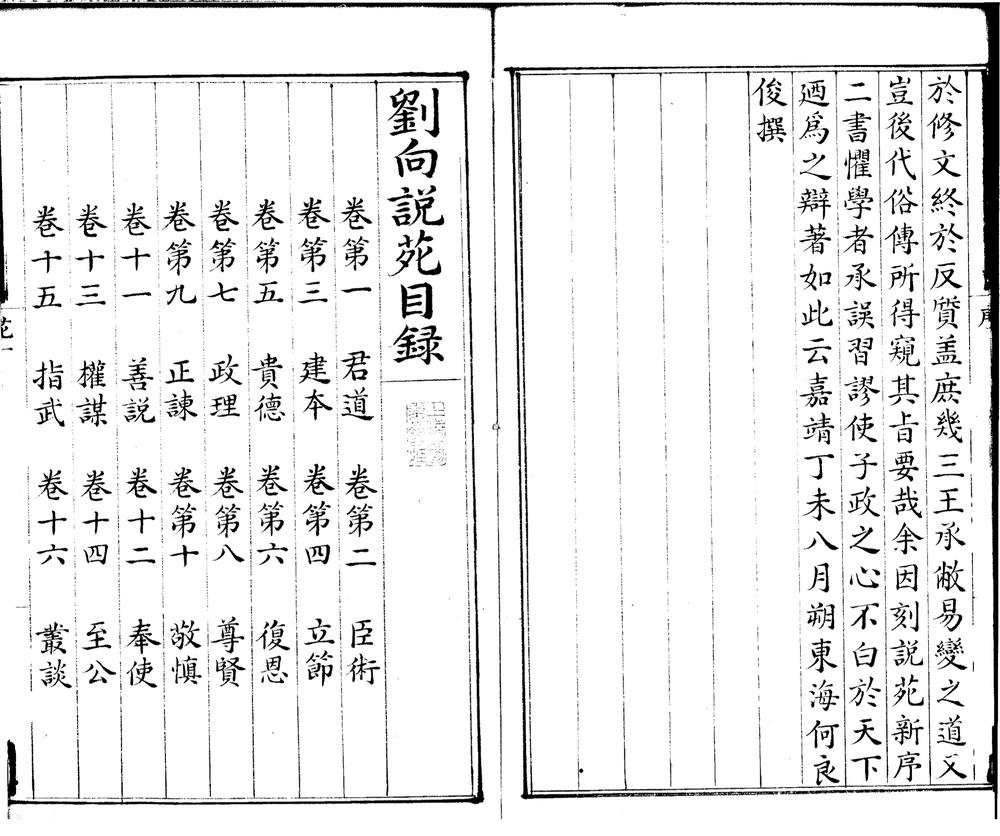 於修文終於反質盖庶幾三王承敝易變之道又
豈後代俗傳所得窺其㫖要哉余因刻説苑新序
二書懼學者承誤習謬使子政之心不白於天下
廼爲之辯著如此云嘉靖丁未八月朔東海何良
俊撰
序
劉向説苑目録
卷第一 君道 卷第二 臣術
卷第三 建本 卷第四 立節
卷第五 貴德 卷第六 復恩
卷第七 政理 卷第八 尊賢
卷第九 正諫 卷第十 敬慎
卷十一 善説 卷十二 奉使
卷十三 權謀 卷十四 至公
卷十五 指武 卷十六 叢談